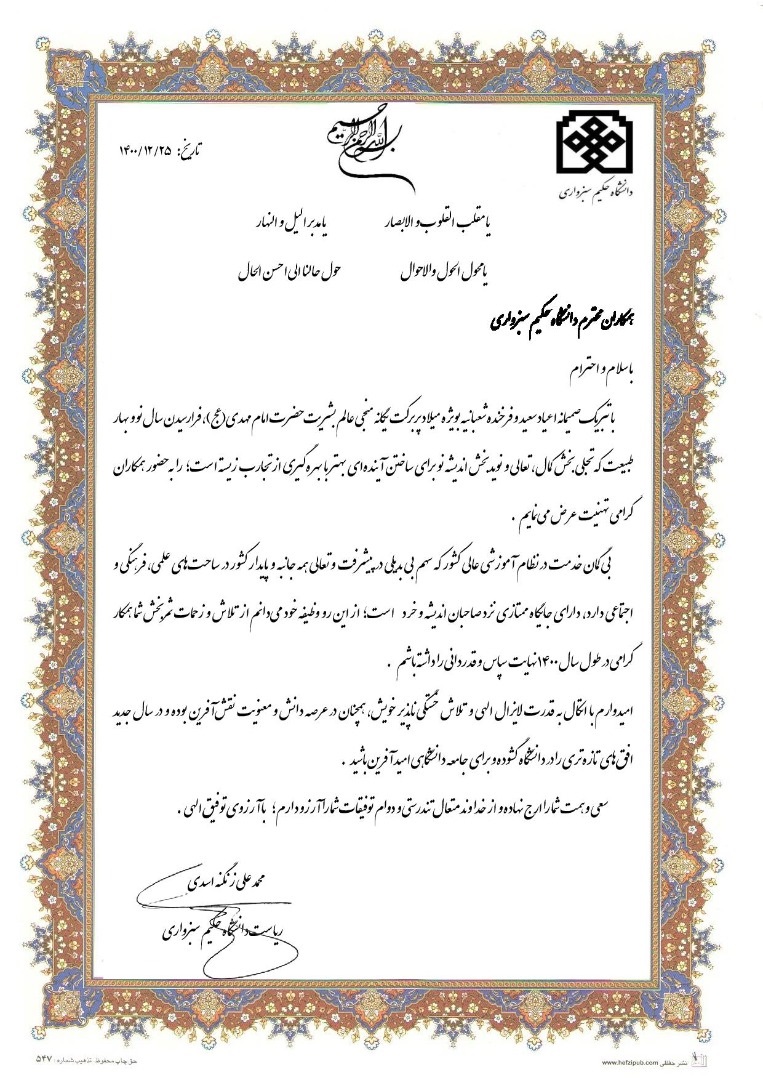 بسم الله الرحمن الرحیم
دانشگاه حکیم سبزواری
تاریخ: ۱۴۰۰/۱۲/۲۵
یا مقلب القلوب و الابصار یا مدبر الیل و النهار
یا محول الحول والاحوال حول حالنا الی احسن الحال
همکاران محترم دانشگاه حکیم سبزواری
با سلام و احترام
با تبریک صمیمانه اعیاد سعید و فرخنده شعبانیه بویژه میلاد پربرکت یگانه منجی عالم بشریت حضرت امام مهدی (عج)، فرارسیدن سال نو و بهار
طبیعت که تجلی بخش کمال، تعالی و نوید بخش اندیشه نو برای ساختن آینده ای بهتر با بهره گیری از تجارب زیسته است؛ را به حضور همکاران
گرامی تهنیت عرض می نمایم .
بی گمان خدمت در نظام آموزشی عالی کشور که سهم بی بدیلی در پیشرفت و تعالی همه جانبه و پایدار کشور در ساحت های علمی، فرهنگی و
اجتماعی دارد، دارای جایگاه ممتازی نزد صاحبان اندیشه و خرد است؛ از این رو وظیفه خود می دانم از تلاش و زحمات ثمربخش شما همکار
گرامی در طول سال ۱۴۰۰ نهایت سپاس و قدردانی را داشته باشم .
امیدوارم با اتکال به قدرت لایزال الهی و تلاش خستگی ناپذیر خویش، همچنان در عرصه دانش و معنویت نقش آفرین بوده و در سال جدید
افق های تازه تری را در دانشگاه گشوده و برای جامعه دانشگاهی امید آفرین باشید .
سعی و همت شما را ارج نهاده و از خداوند متعال تندرستی و دوام توفیقات شما را آرزو دارم؛ با آرزوی توفیق الهی .
محمد علی زنگنه اسدی
ریاست دانشگاه حکیم سبزواری
نشر حفظی www.hefzipub.com
حق چاپ محفوظ. تذهیب شماره: ۵۴۷